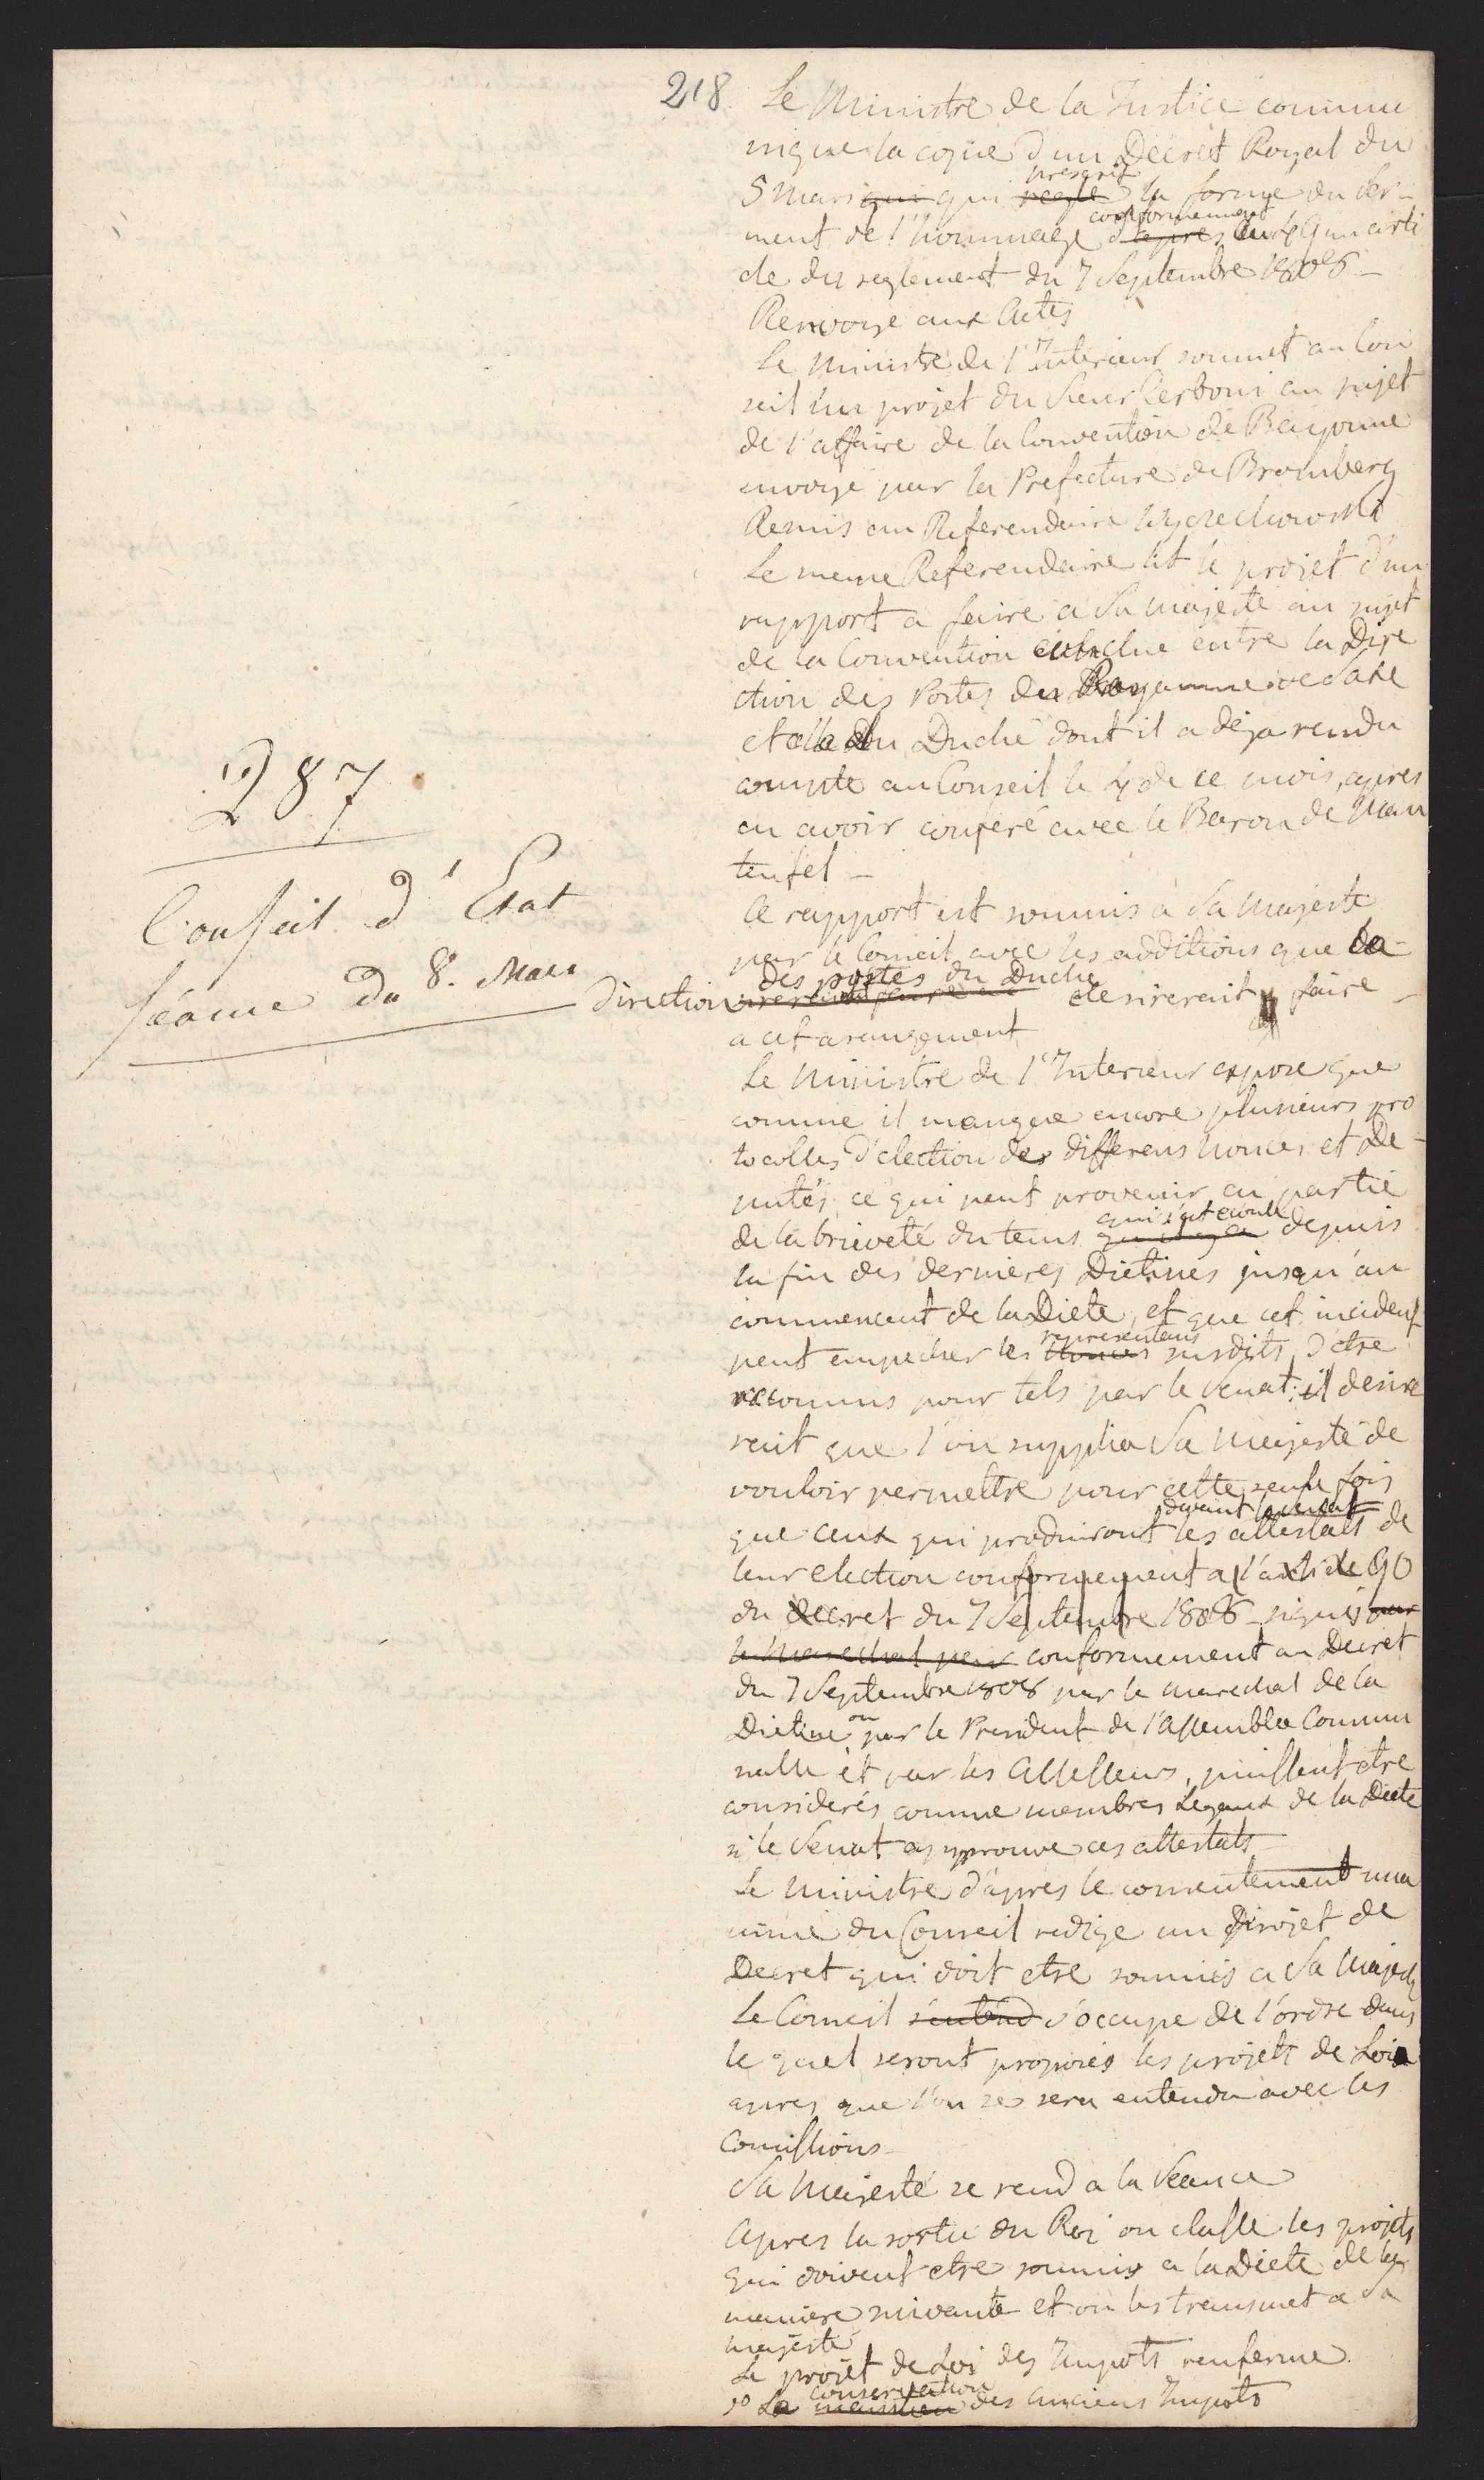 218.
Le Ministre de la Justice commu
nique la copie d'un Decret Royal du
prescrit
5 Mars qui qui regle la forme du ser-
conformement
ment de l'hommage d'apres au 9 un arti
cle du reglement du 7 Septembre 1808 -
Renvoyé aux Actes
Le Ministre de l'Interieur soumet au Con
seil un projet du Sieur Cerboni au sujet
de l'affaire de la Convention de Bayonne
envoyé par la Prefecture de Bromberg
Remis au Referendaire Wyczechowski
Le meme Referendaire lit le projet d'un
rapport a faire a Sa Majesté au sujet
de la Convention conclue entre la Dire
ction des Postes du Royaume de Saxe
et celle du Duché dont il a deja rendu
compte au Conseil le 4 de ce mois, apres
en avoir conferé avec le Baron de Man
teufel -
Ce rapport est soumis à Sa Majesté
par le Conseil avec les additions que la
des postes du Duché
direction desirerait y faire -
a cet arangement
Le Ministre de l'Interieur expose que
comme il manque encore plusieurs pro
tocolles d'election des differens Nonces et De-
putés, ce qui peut provenir en partie
qui s'est ecoulé
de la brieveté du tems depuis
la fin des dernieres Dietines jusqu'au
commencent de la Diete, et que cet incident
representans
peut empecher les Nonces susdits, d'etre
reconnus pour tels par le Senat; il desire
rait que l'on supplia Sa Majesté de
vouloir permettre pour cette seule fois
devant le senat
que ceux qui produiront les attestats de
leur election conformement a l'article 90
du decret du 7 Septembre 1808 signés par
le Marechal par conformement au Decret
du 7 Septembre 1808 par le marechal de la
ou
Dietine par le President de l'assemblée Commu
nalle et par les Assesseurs, puissent etre
considerés comme membres Legaux de la Diete
si le Senat approuve ces attestats -
Le Ministre d'apres le consentement una
nime du Conseil redige un projet de
Decret qui doit etre soumis a Sa Majesté
Le Conseil s'entend s'occupe de l'ordre dans
le quel seront proposés les projets de Loix
apres que l'on se sera entendu avec les
Comissions -
Sa Majesté se rend a la Seance
Apres la sortie du Roi on classe les projets
qui doivent etre soumis a la Diete de la
maniere suivante et on les transmet a Sa
Majesté
Le projet de Loi des Impots renferme
conservation
1o La maintien des anciens Impots
287
Conseil d'Etat
Séance du 8. Mars